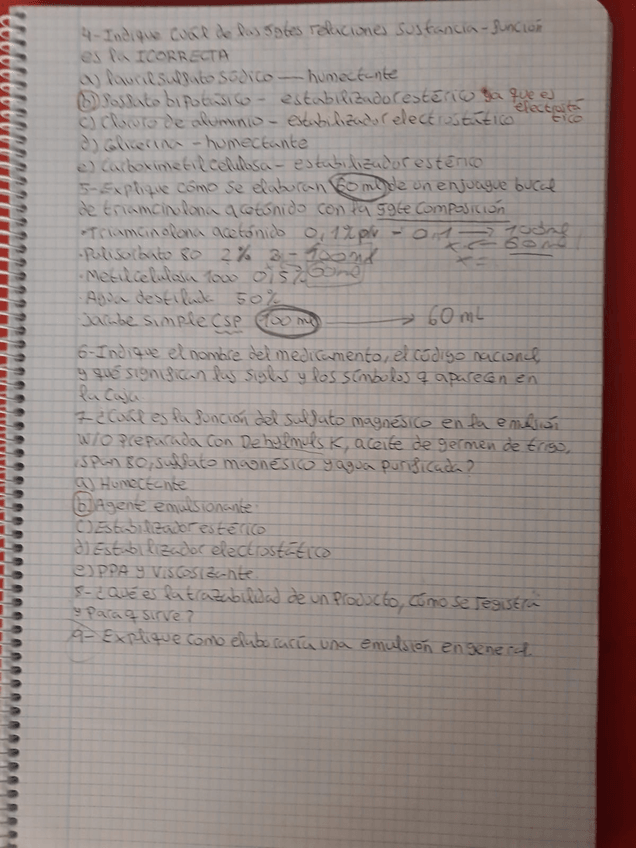 4-Indique cuál de las sgtes relaciones sustancia-función
es la ICORRECTA
a) laurilsulfato sódico — humectante
b) Fosfato bipotásico - estabilizador estérico ya que es electrostático
c) Cloruro de aluminio - estabilizador electrostático
d) Glicerina - humectante
e) Carboximetilcelulosa - estabilizador estérico
5-Explique cómo se elaboran 60 ml de un enjuague bucal
de triamcinolona acetónido con la sgte composición
·Triamcinolona acetónido 0,1% p/v - 0,1 → 100ml
x ← 60 ml
·Polisorbato 80 2% 2 - 100 ml
x =
·Metilcelulosa 1000 0,5% 60ml
·Agua destilada 50%
·Jarabe simple CSP 100 ml → 60 mL
6-Indique el nombre del medicamento, el código nacional
y qué significan las siglas y los símbolos q aparecen en
la caja
7-¿Cuál es la función del sulfato magnésico en la emulsión
W/O preparada con Dehylmuls K, aceite de germen de trigo,
span 80, sulfato magnésico y agua purificada?
a) Humectante
b) Agente emulsionante
c) Estabilizador estérico
d) Estabilizador electrostático
e) PPA y Viscosizante
8-¿Qué es la trazabilidad de un producto, cómo se registra
y para q sirve?
9- Explique como elaboraría una emulsión en general.